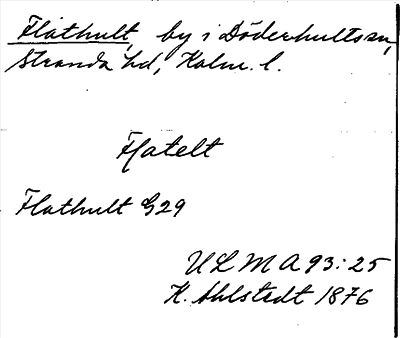 Flathult, by i Döderhults sn,
Stranda hd, Kalm. l.
Flatelt
Flathult G29
ULMA 93:25
K. Ahlstedt 1876